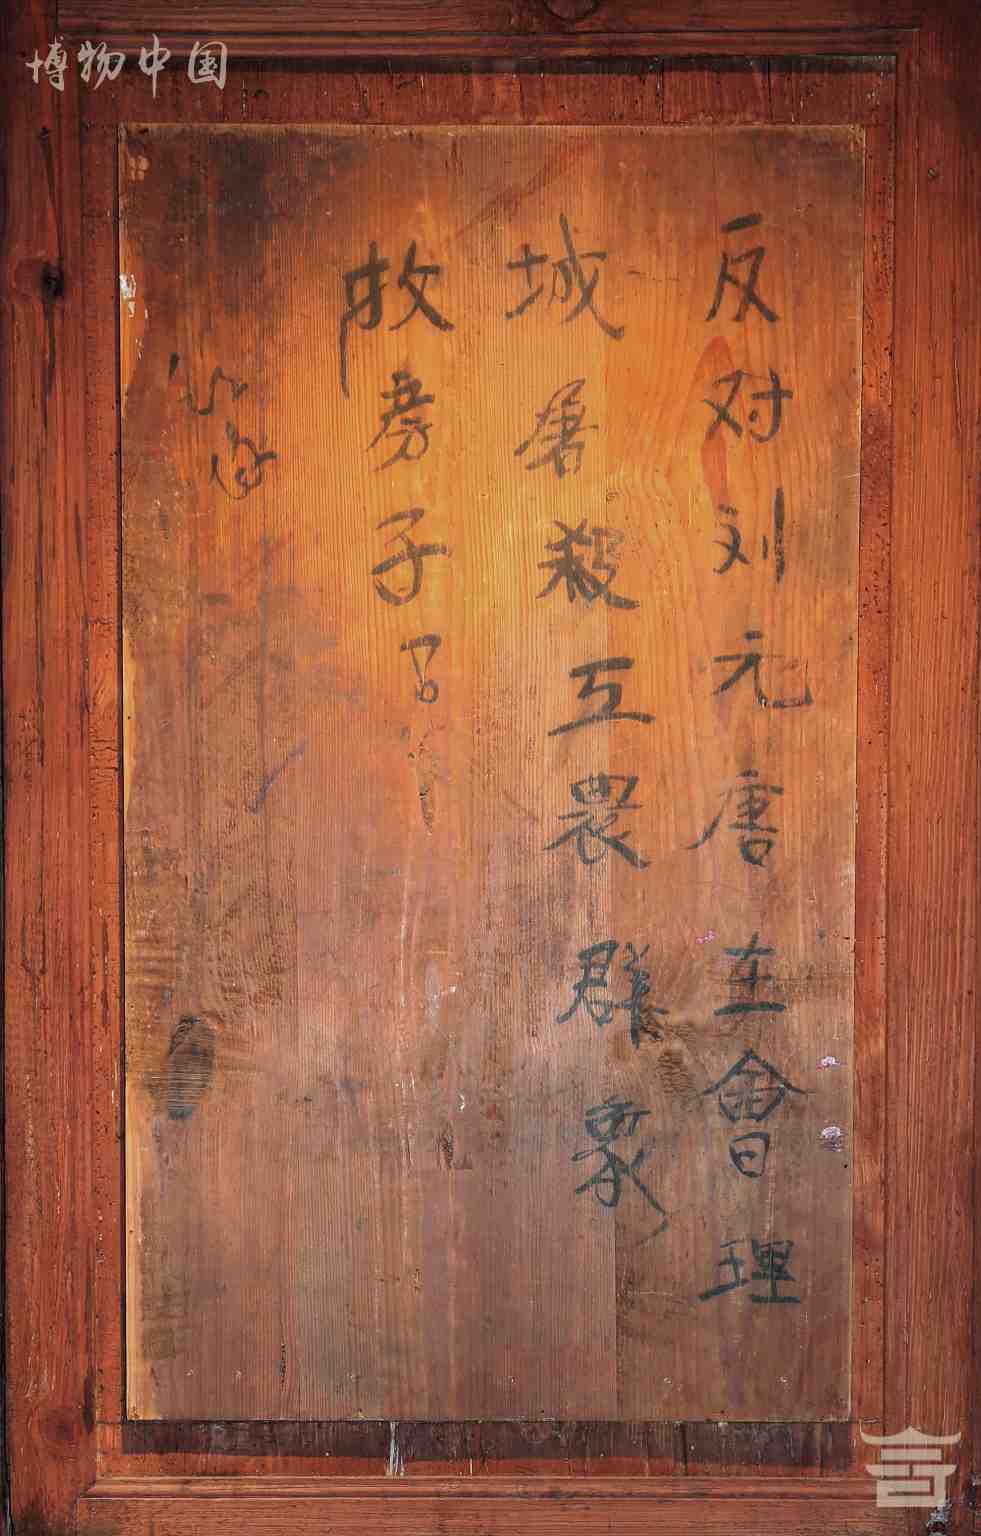 博物中国
反对刘元唐在會理
城屠殺工農群衆
放房子